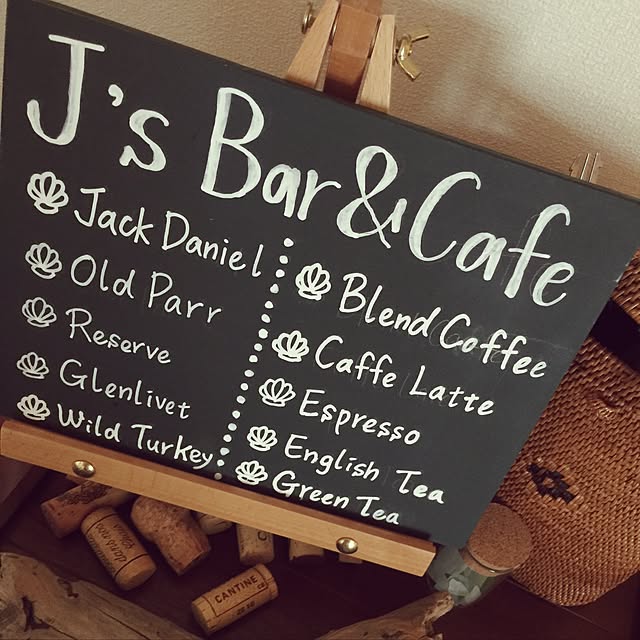 J's Bar & Cafe
Jack Daniel
Old Parr
Reserve
Glenlivet
Wild Turkey
Blend Coffee
Caffe Latte
Espresso
English Tea
Green Tea
CANTINE